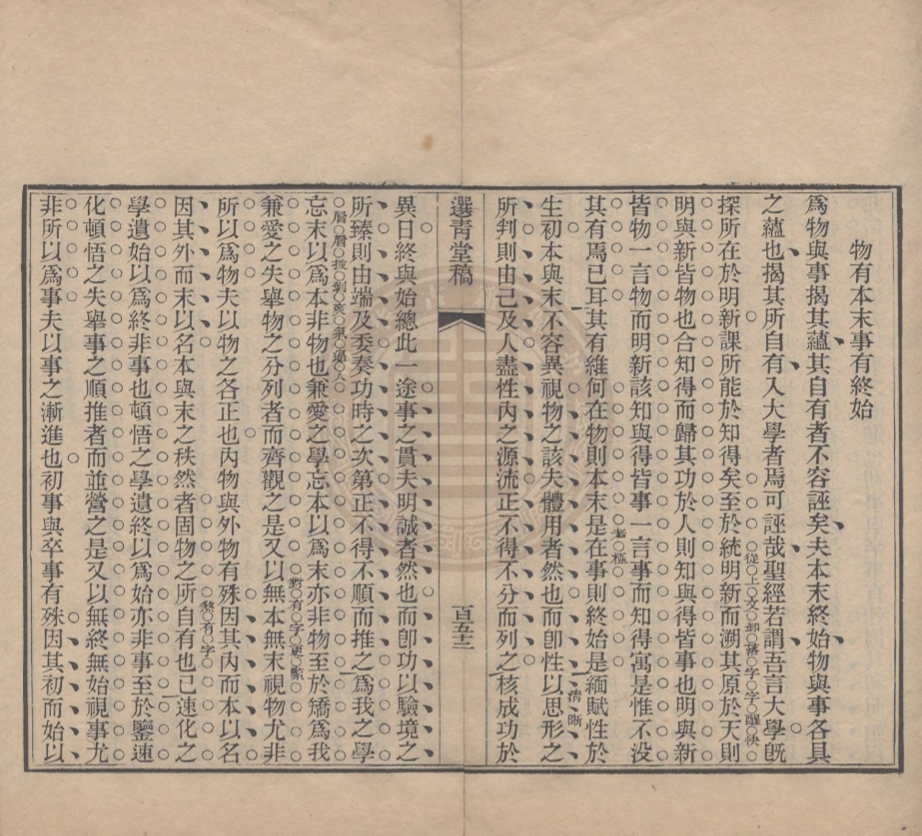 物有本末事有終始
爲物與事揭其蘊其自有者不容誣矣夫本末終始物與事各具
之蘊也揭其所自有入大學者焉可誣哉聖經若謂吾言大學旣
探所在於明新課所能於知得矣至於統明新而溯其原於天則
從上文卸落字字醒快
明與新皆物也合知得而歸其功於人則知與得皆事也明與新
皆物一言物而明新該知與得皆事一言事而知得寓是惟不没
老極
其有焉已耳其有維何在物則本末是在事則終始是緬賦性於
生初本與末不容異視物之該夫體用者然也而卽性以思形之
清晰
所判則由己及人盡性内之源流正不得不分而列之核成功於
選青堂稿
百五十三
異日終與始總此一途事之貫夫明誠者然也而卽功以驗境之
所臻則由端及委奏功時之次第正不得不順而推之爲我之學
層層披剝亥氣逼人
忘末以爲本非物也兼愛之學忘本以爲末亦非物至於矯爲我
對有字更緊
兼愛之失舉物之分列者而齊觀之是又以無本無末視物尤非
所以爲物夫以物之各正也内物與外物有殊因其内而本以名
因其外而末以名本與末之秩然者固物之所自有也已速化之
煞有字
學遺始以爲終非事也頓悟之學遺終以爲始亦非事至於鑒速
化頓悟之失舉事之順推者而並營之是又以無終無始視事尤
非所以爲事夫以事之漸進也初事與卒事有殊因其初而始以